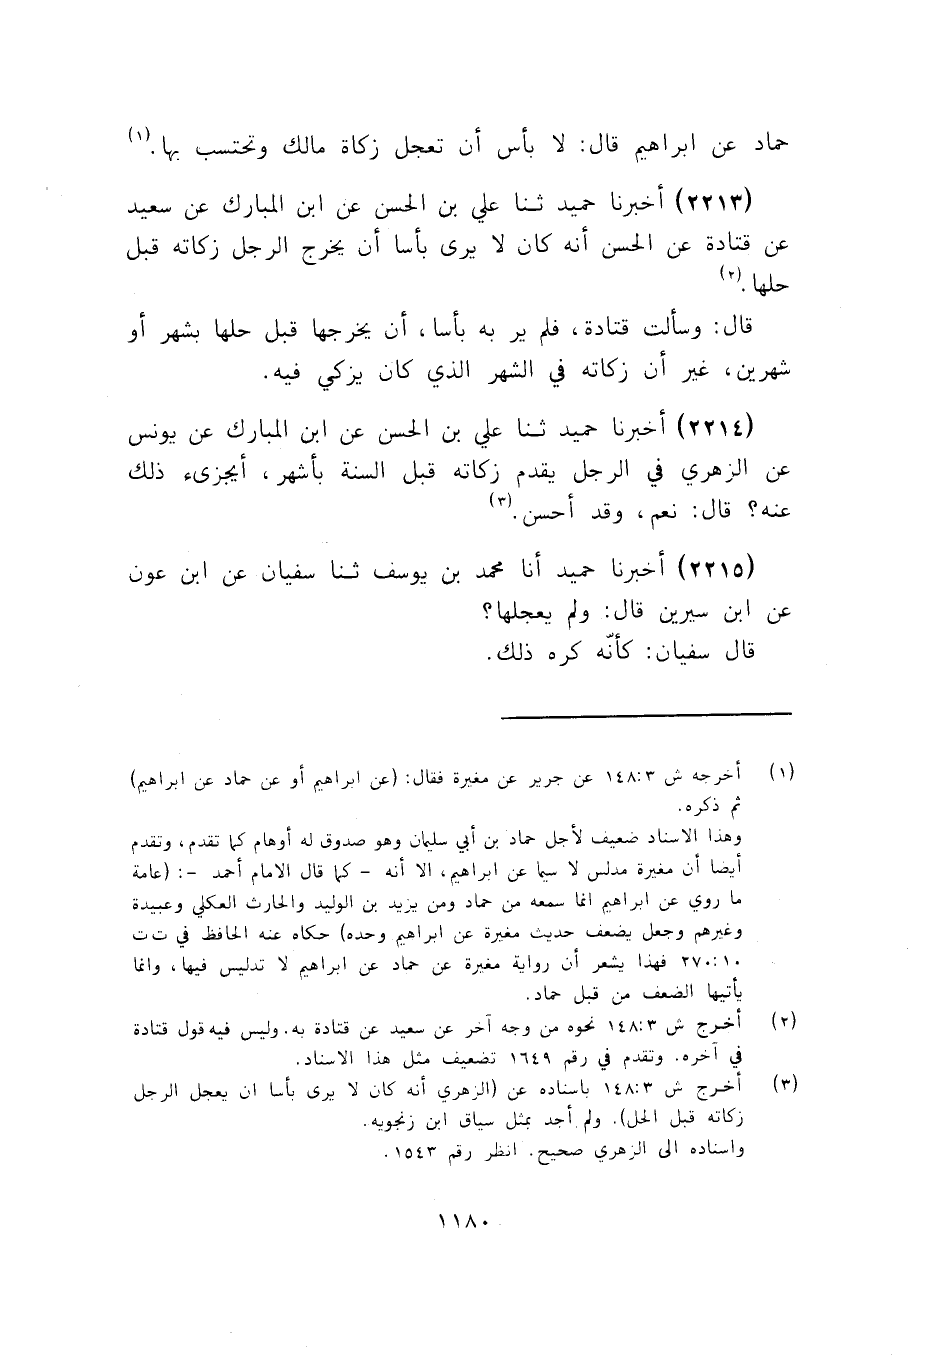 حماد عن ابراهيم قال: لا بأس أن تعجل زكاة مالك وتحتسب بها.(١)
(٢٢١٣) أخبرنا حميد ثنا علي بن الحسن عن ابن المبارك عن سعيد
عن قتادة عن الحسن أنه كان لا يرى بأسا أن يخرج الرجل زكاته قبل
حلها.(٢)
قال: وسألت قتادة، فلم ير به بأسا، أن يخرجها قبل حلها بشهر أو
شهرين، غير أن زكاته في الشهر الذي كان يزكي فيه.
(٢٢١٤) أخبرنا حميد ثنا علي بن الحسن عن ابن المبارك عن يونس
عن الزهري في الرجل يقدم زكاته قبل السنة بأشهر، أيجزىء ذلك
عنه؟ قال: نعم، وقد أحسن.(٣)
(٢٢١٥) أخبرنا حميد أنا محمد بن يوسف ثنا سفيان عن ابن عون
عن ابن سيرين قال: ولم يعجلها؟
قال سفيان: كأنّه كره ذلك.
(١) أخرجه ش ١٤٨:٣ عن جرير عن مغيرة فقال: (عن ابراهيم أو عن حماد عن ابراهيم)
ثم ذكره.
وهذا الاسناد ضعيف لأجل حماد بن أبي سليمان وهو صدوق له أوهام كما تقدم، وتقدم
أيضا أن مغيرة مدلس لا سيما عن ابراهيم، الا أنه - كما قال الامام أحمد -: (عامة
ما روي عن ابراهيم انما سمعه من حماد ومن يزيد بن الوليد والحارث العكلي وعبيدة
وغيرهم وجعل يضعف حديث مغيرة عن ابراهيم وحده) حكاه عنه الحافظ في ت ت
٢٧٠:١٠ فهذا يشعر أن رواية مغيرة عن حماد عن ابراهيم لا تدليس فيها، وانما
يأتيها الضعف من قبل حماد.
(٢) أخرج ش ١٤٨:٣ نحوه من وجه آخر عن سعيد عن قتادة به. وليس فيه قول قتادة
في آخره. وتقدم في رقم ١٦٤٩ تضعيف مثل هذا الاسناد.
(٣) أخرج ش ١٤٨:٣ باسناده عن (الزهري أنه كان لا يرى بأسا ان يعجل الرجل
زكاته قبل الحل). ولم أجد بمثل سياق ابن زنجويه.
واسناده الى الزهري صحيح. انظر رقم ١٥٤٣.
١١٨٠